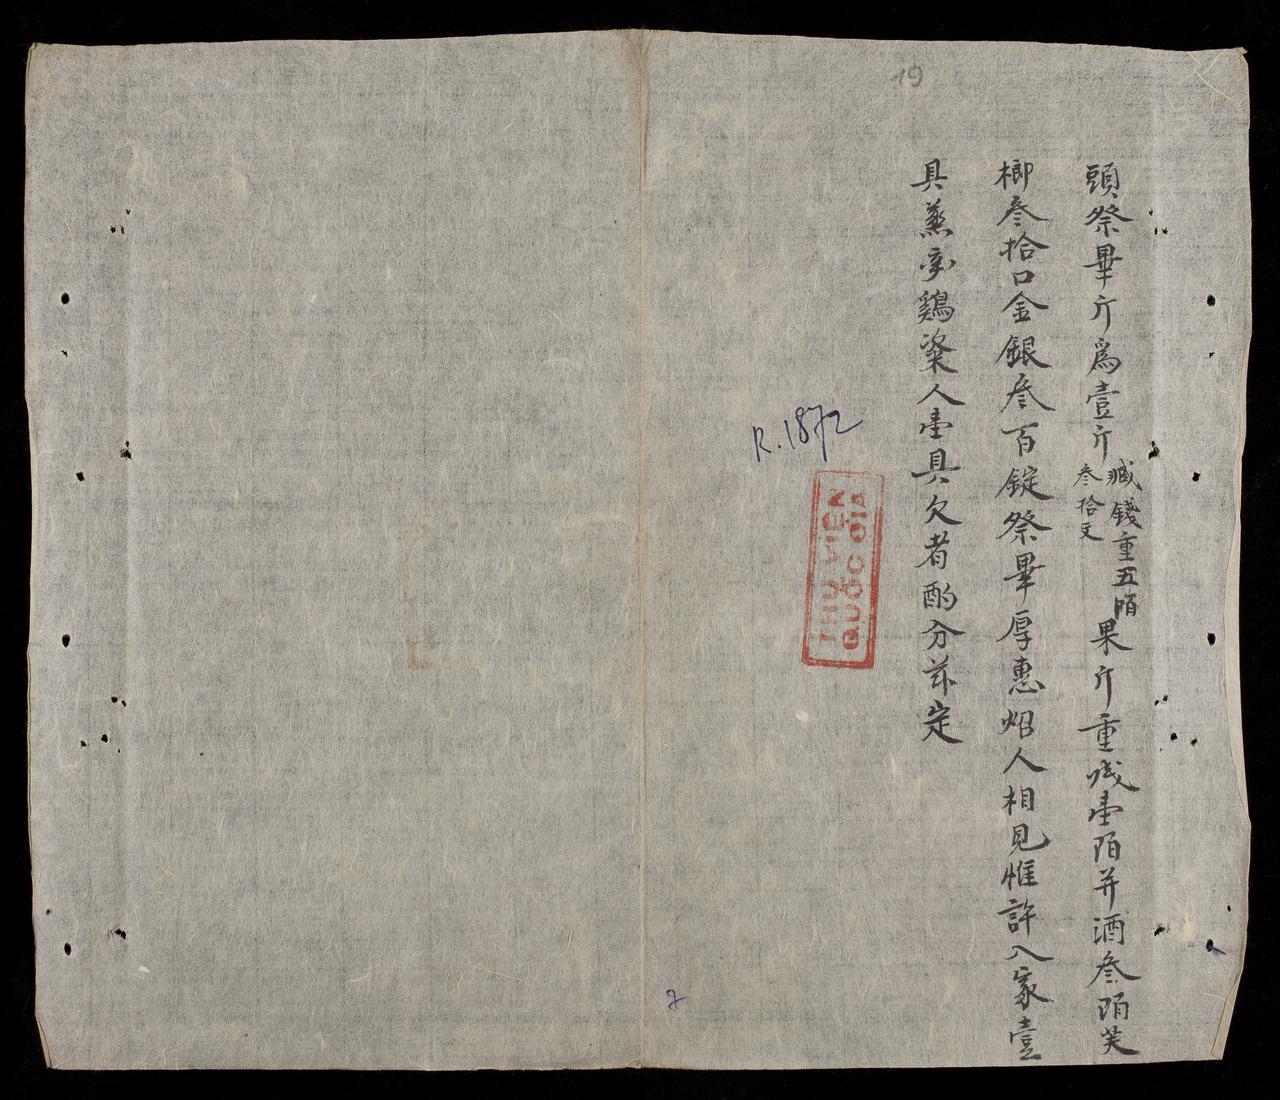 19
頭祭畢斤爲壹斤臧錢重五陌叁拾文果斤重戔壹陌并酒叁陌芙
榔叁拾口金銀叁百錠祭畢厚惠炤人相見惟許入家壹
具蒸熟鷄粢人壹具欠者酌分兹定
R.1872
THƯ VIỆN
QUỐC GIA
2